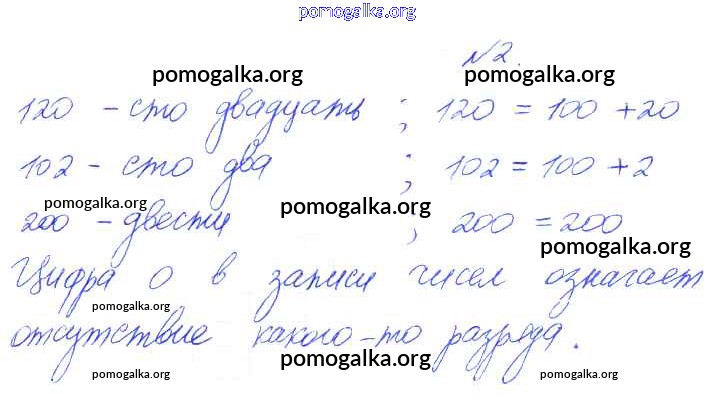 pomogalka.org
№2.
pomogalka.org pomogalka.org
120 - сто двадцать ; 120 = 100 + 20
pomogalka.org
102 - сто два ; 102 = 100 + 2
pomogalka.org pomogalka.org
200 - двести ; 200 = 200
pomogalka.org
Цифра 0 в записи чисел означает
pomogalka.org
отсутствие какого-то разряда.
pomogalka.org
pomogalka.org pomogalka.org